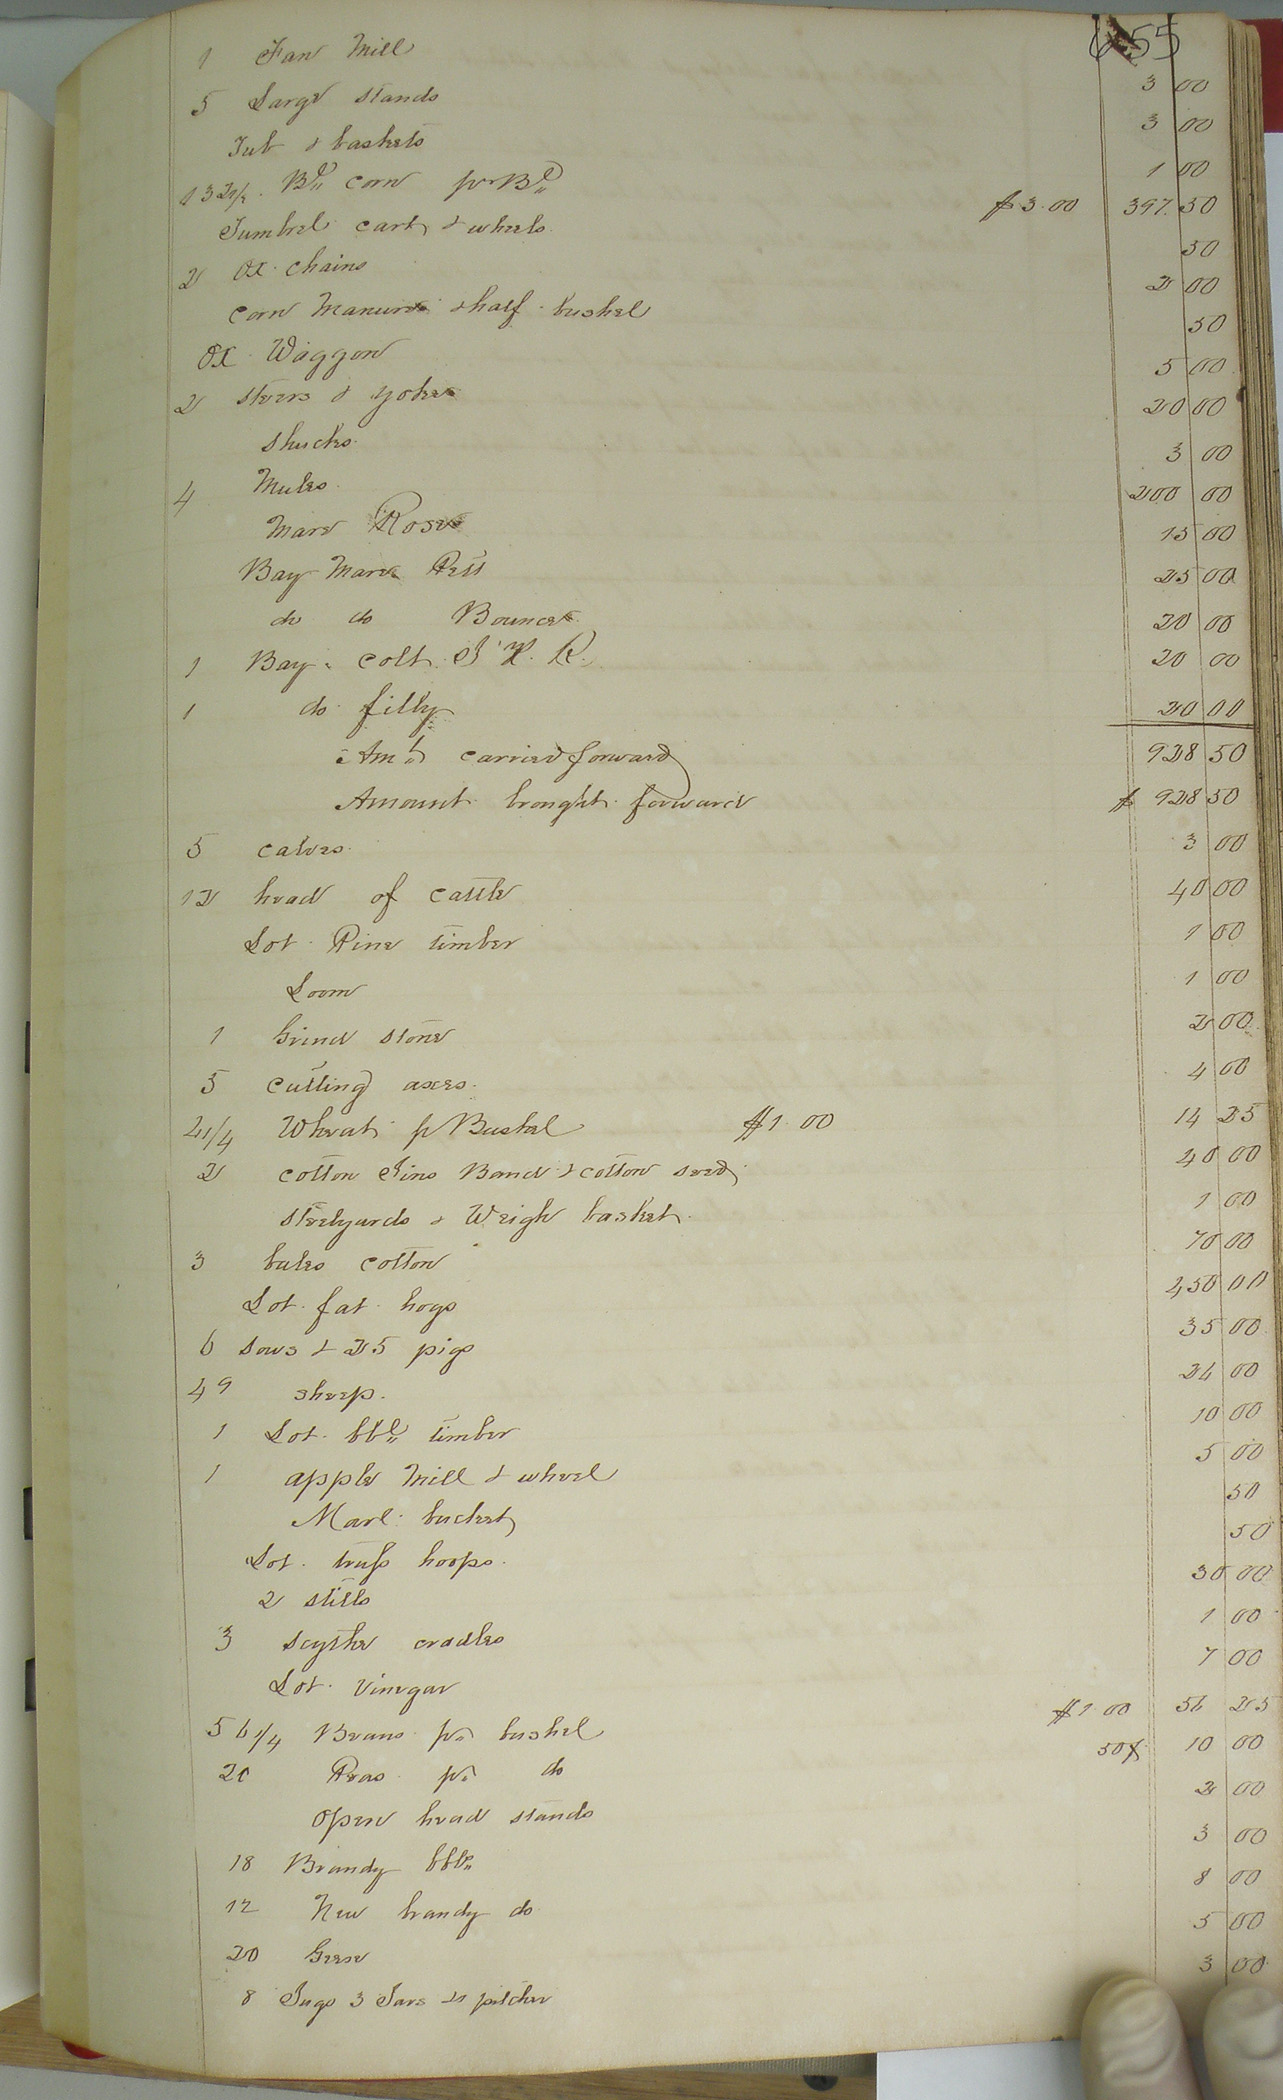 655
1 Fan Mill 3 00
5 Large stands 3 00
Tub & baskets 1 00
132 1/2 Bl corn pr Bl $3.00 397.50
Tumbrel cart & wheels 50
2 Ox chains 2 00
Corn Manure & half bushel 50
Ox Waggon 5 00
2 steers & yoke 20 00
Shucks 3 00
4 Mules 200 00
Mare Rose 15 00
Bay Mare Pett 25 00
do do Bounce 20 00
1 Bay colt 20 00
1 do filly 20 00
Amt carried forward 928 50
Amount brought forward $ 928 50
5 calves 3 00
12 head of cattle 40 00
Lot Pine timber 1 00
Loom 1 00
1 Grind stone 2 00
5 cutting axes 4 00
Wheat pr Bushel $1.00 14 25
2 cotton Gins Band & cotton seed 40 00
Steelyards & Weigh basket 1 00
3 bales cotton 70 00
Lot fat hogs 450 00
6 sows & 25 pigs 35 00
49 sheep 00
1 Lot bbl timber 10 00
1 apple Mill & wheel 5 00
Marl bucket 50
Lot truss hoops 50
2 stills 30 00
3 scythe cradles 1 00
Lot vinegar 7 00
56 1/4 Beans pr bushel $1.00 56 25
20 Peas pr do 50¢ 10 00
open head stands 2 00
18 Brandy bbls 3 00
12 New brandy do 8 00
20 Geese 5 00
8 Jugs 3 Jars & pitcher 3 00